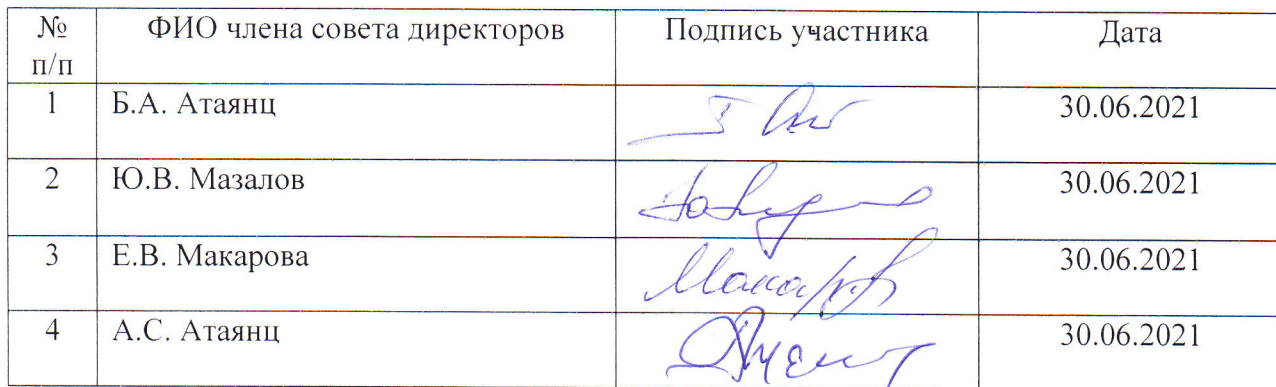 № п/п ФИО члена совета директоров Подпись участника Дата
1 Б.А. Атаянц 30.06.2021
2 Ю.В. Мазалов 30.06.2021
3 Е.В. Макарова 30.06.2021
4 А.С. Атаянц 30.06.2021